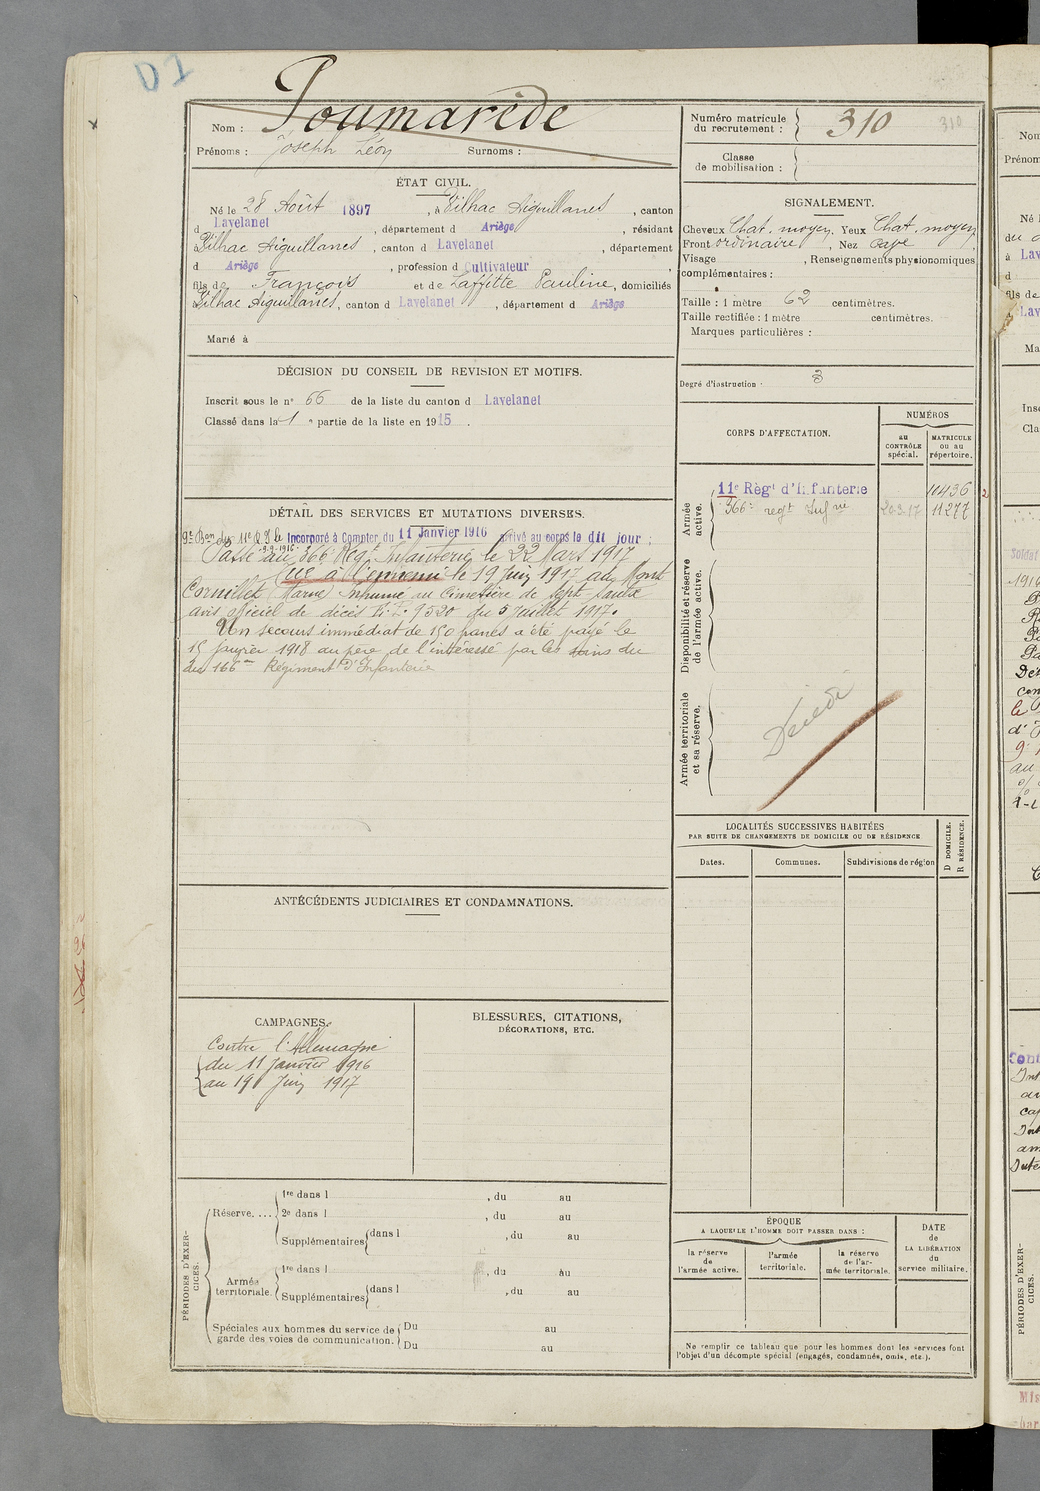 D1
Nom : Poumarède
Prénoms : Joseph Léon Surnoms :
ÉTAT CIVIL.
Né le 28 Août 1897, à Pilhac Aiguillanes, canton
d Lavelanet, département d Ariège, résidant
à Pilhac Aiguillanes, canton d Lavelanet, département
d Ariège, profession d Cultivateur
fils de François et de Laffitte Pauline, domiciliés
à Pilhac Aiguillanes, canton d Lavelanet, département d Ariège
Marié à
DÉCISION DU CONSEIL DE REVISION ET MOTIFS.
Inscrit sous le n° 66 de la liste du canton d Lavelanet
Classé dans la 1 e partie de la liste en 1915.
DÉTAIL DES SERVICES ET MUTATIONS DIVERSES.
9e Bon du 11e R I le Incorporé à Compter du 11 Janvier 1916 arrivé au corps le dit jour ;
9-9-1916
Passé au 366e Régt Infanterie le 22 Mars 1917
Tué à l'ennemi le 19 Juin 1917 au Mont
Cornillet (Marne) Inhumé au Cimetière de Sept Saulx
avis officiel de décès N.I. 9520 du 5 Juillet 1917.
Un secours immédiat de 150 francs a été payé le
15 Janvier 1918 au père de l'intéressé par les soins du
du 166me Régiment d'Infanterie
ANTÉCÉDENTS JUDICIAIRES ET CONDAMNATIONS.
CAMPAGNES.
Contre l'Allemagne
du 11 Janvier 1916
au 19 Juin 1917
BLESSURES, CITATIONS,
DÉCORATIONS, ETC.
PÉRIODES D'EXER-
CICES.
Réserve. ...
1re dans l , du au
2e dans l , du au
Supplémentaires dans l , du au
Armée
territoriale.
1re dans l , du au
Supplémentaires dans l , du au
Spéciales aux hommes du service de
garde des voies de communication.
Du au
Du au
Numéro matricule
du recrutement : 310
310
Classe
de mobilisation :
SIGNALEMENT.
Cheveux Chat. moyen, Yeux Chat. moyen
Front ordinaire, Nez Cave
Visage , Renseignements physionomiques
complémentaires :
Taille : 1 mètre 62 centimètres.
Taille rectifiée : 1 mètre centimètres.
Marques particulières :
Degré d'instruction : 3
CORPS D'AFFECTATION.
NUMÉROS
au
CONTRÔLE
spécial.
MATRICULE
ou au
répertoire.
Armée
active.
11e Régt d'Infanterie 10436
366e regt Infrie 20-3-17 11277
Disponibilité et réserve
de l'armée active.
Armée territoriale
et sa réserve.
Décédé
LOCALITÉS SUCCESSIVES HABITÉES
PAR SUITE DE CHANGEMENTS DE DOMICILE OU DE RÉSIDENCE
Dates.
Communes.
Subdivisions de région
D DOMICILE.
R RÉSIDENCE.
ÉPOQUE
A LAQUELLE L'HOMME DOIT PASSER DANS :
la réserve
de
l'armée active.
l'armée
territoriale.
la réserve
de l'ar-
mée territoriale.
DATE
de
LA LIBÉRATION
du
service militaire.
Ne remplir ce tableau que pour les hommes dont les services font
l'objet d'un décompte spécial (engagés, condamnés, omis, etc.).